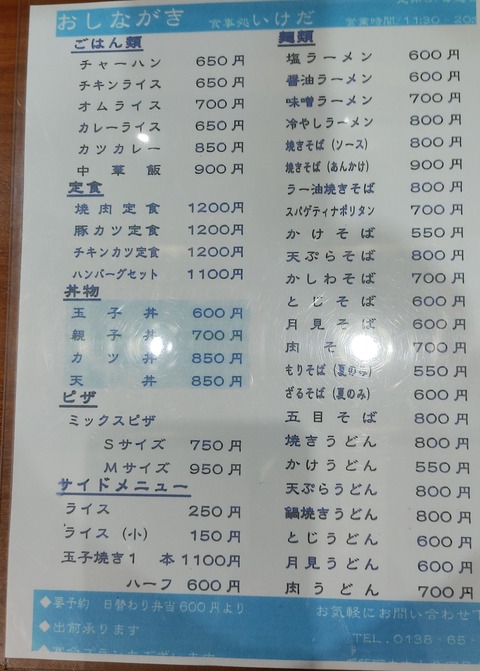 おしながき 食事処いけだ 営業時間/11:30
ごはん類
チャーハン 650円
チキンライス 650円
オムライス 700円
カレーライス 650円
カツカレー 850円
中華飯 900円
定食
焼肉定食 1200円
豚カツ定食 1200円
チキンカツ定食 1200円
ハンバーグセット 1100円
丼物
玉子丼 600円
親子丼 700円
カツ丼 850円
天丼 850円
ピザ
ミックスピザ
Sサイズ 750円
Mサイズ 950円
サイドメニュー
ライス 250円
ライス(小) 150円
玉子焼き1本 1100円
ハーフ 600円
麺類
塩ラーメン 600円
醤油ラーメン 600円
味噌ラーメン 700円
冷やしラーメン 800円
焼きそば(ソース) 800円
焼きそば(あんかけ) 900円
ラー油焼きそば 800円
スパゲティナポリタン 700円
かけそば 550円
天ぷらそば 800円
かしわそば 700円
とじそば 600円
月見そば 600円
肉そ 700円
もりそば(夏のみ) 550円
ざるそば(夏のみ) 600円
五目そば 800円
焼きうどん 800円
かけうどん 550円
天ぷらうどん 800円
鍋焼きうどん 800円
とじうどん 600円
月見うどん 600円
肉うどん 700円
◆要予約 日替わり弁当600円より
◆出前承ります
お気軽にお問い合わせ
TEL.0138-65-